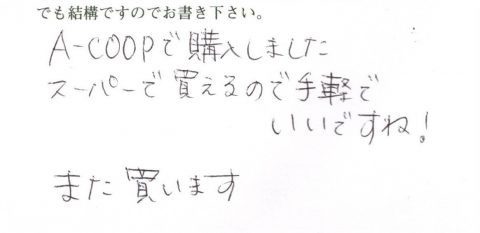 でも結構ですのでお書き下さい。
A-COOPで購入しました
スーパーで買えるので手軽で
いいですね!
また買います